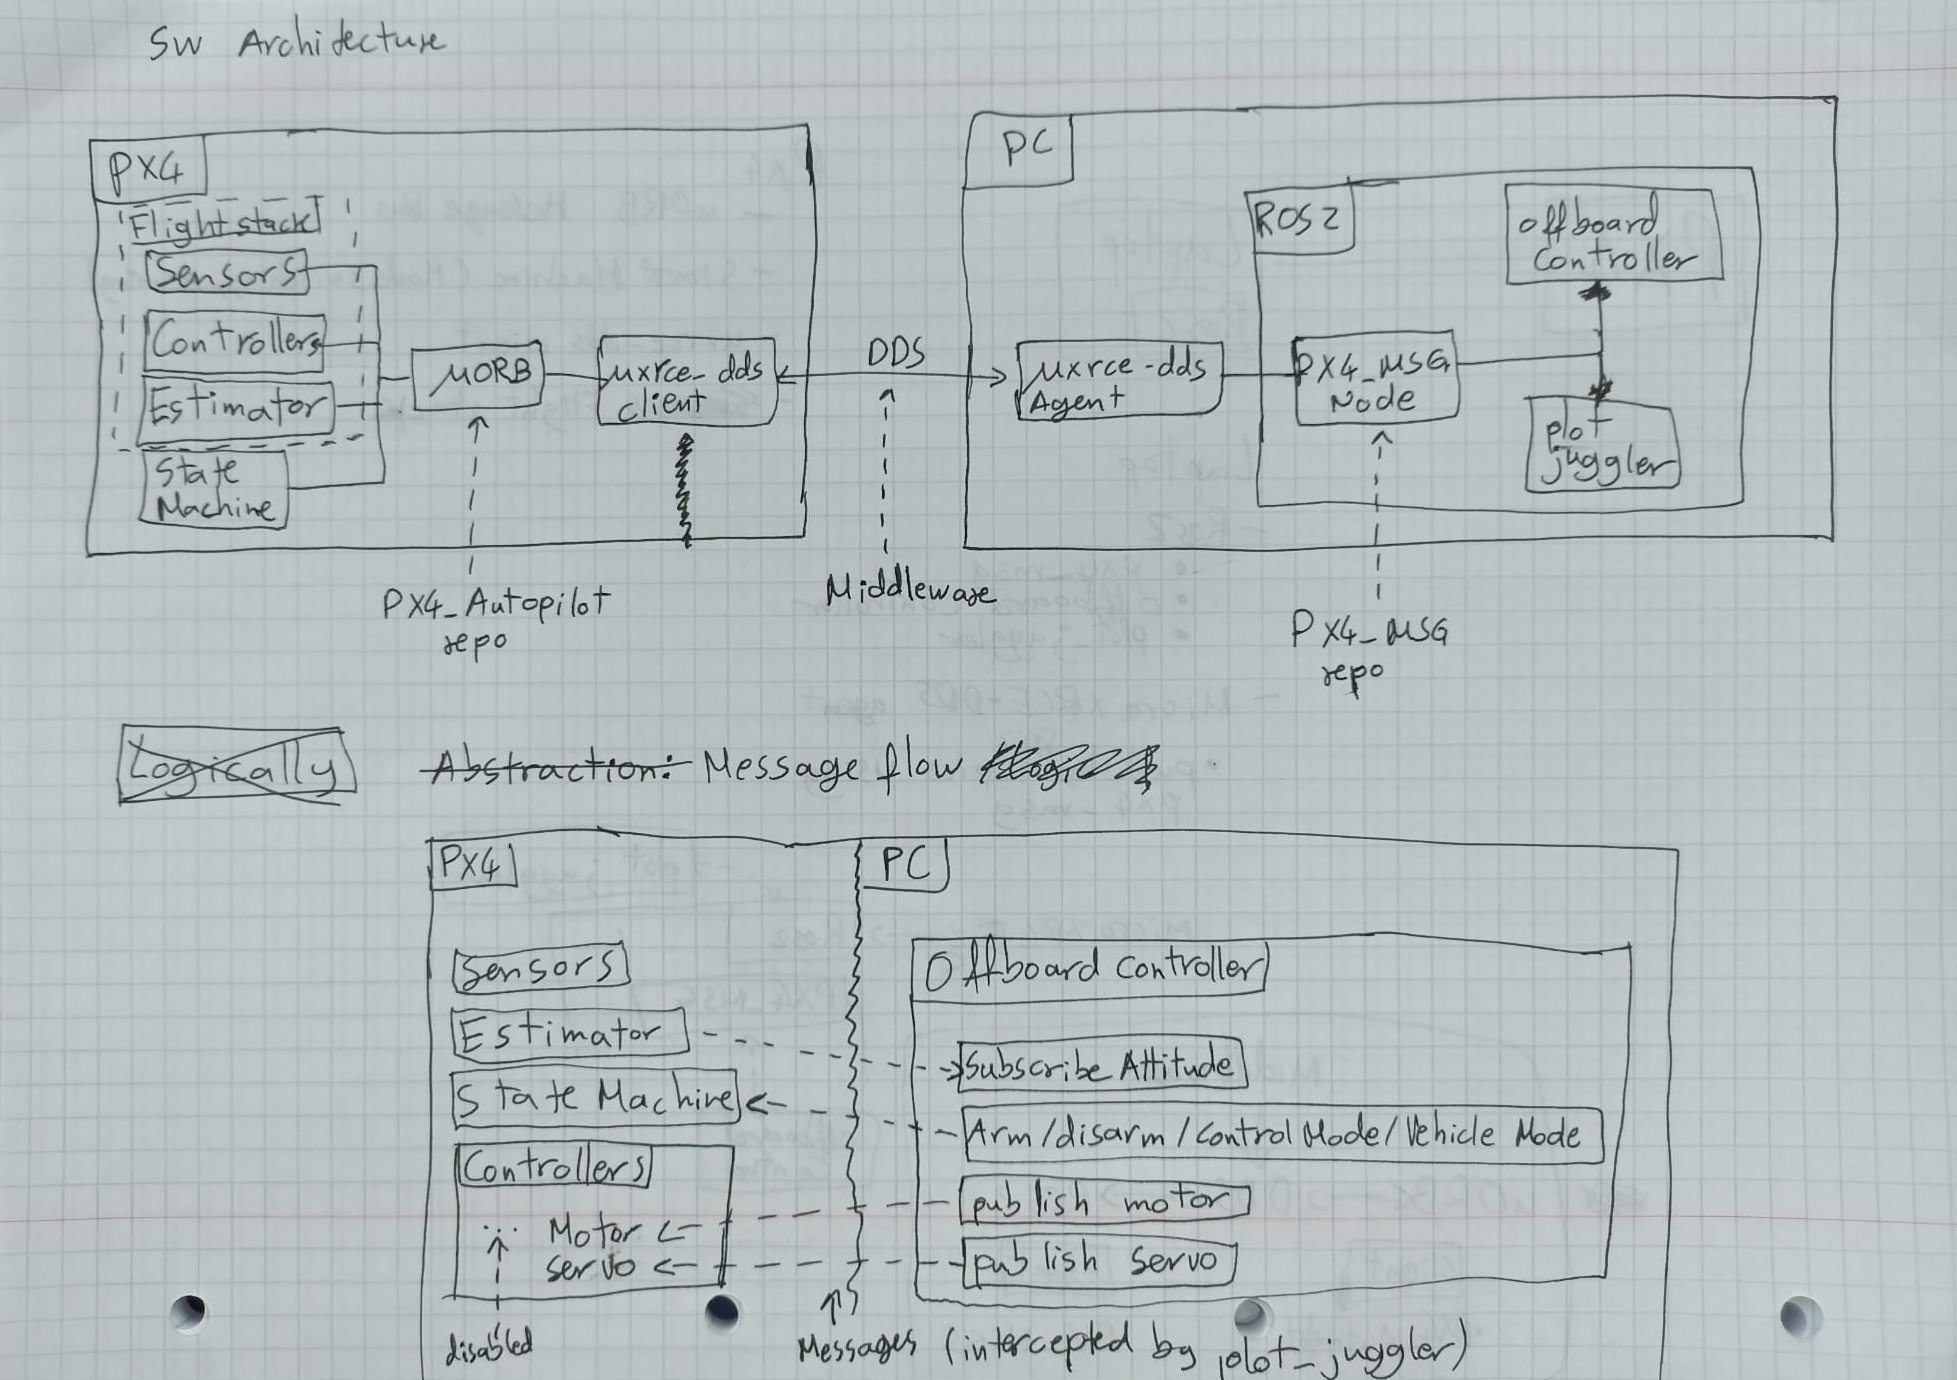 SW Architecture
PX4
Flight stack
Sensors
Controllers
Estimator
State
Machine
μORB
μxrce_dds
client
DDS
PC
μxrce-dds
Agent
ROS2
PX4_MSG
Node
Offboard
Controller
plot
juggler
PX4_Autopilot
repo
Middleware
PX4_MSG
repo
Logically
Abstraction: Message flow
PX4
PC
Sensors
Estimator
State Machine
Controllers
... Motor
servo
disabled
Offboard Controller
Subscribe Attitude
Arm/disarm/Control Mode/Vehicle Mode
publish motor
publish servo
Messages (intercepted by plot_juggler)